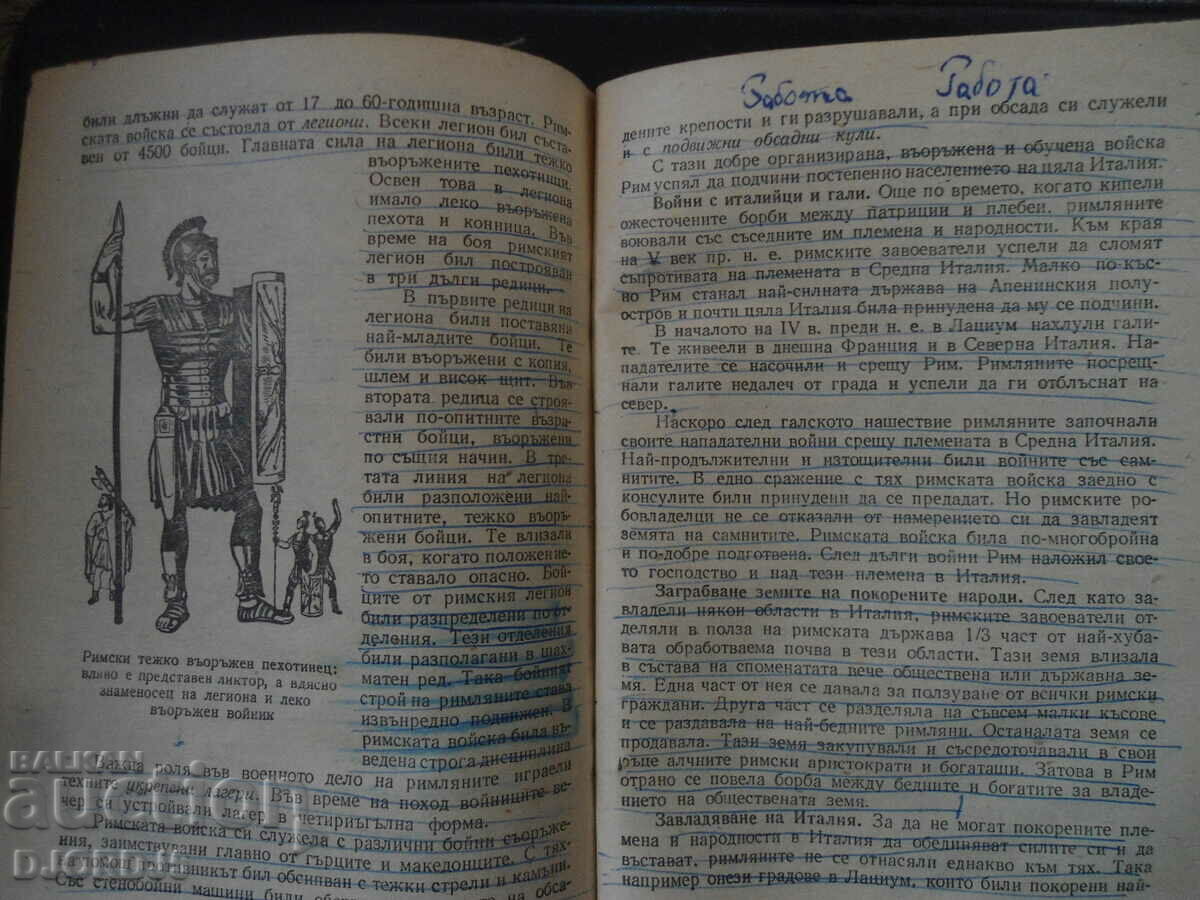 били длъжни да служат от 17 до 60-годишна възраст. Рим-
ската войска се състояла от легиони. Всеки легион бил съста-
вен от 4500 бойци. Главната сила на легиона били тежко
въоръжените пехотинци.
Освен това в легиона
имало леко въоръжена
пехота и конница. Във
време на боя римският
легион бил построяван
в три дълги редици.
В първите редици на
легиона били поставяни
най-младите бойци. Те
били въоръжени с копия,
шлем и висок щит. Във
втората редица се строя-
вали по-опитните възра-
стни бойци, въоръжени
по същия начин. В тре-
тата линия на легиона
били разположени най-
опитните, тежко въоръ-
жени бойци. Те влизали
в боя, когато положение-
то ставало опасно. Бой-
ците от римския легион
били разпределени по от-
деления. Тези отделения
били разполагани в шах-
матен ред. Така бойният
строй на римляните става
извънредно подвижен. В
римската войска била въ-
ведена строга дисциплина
Римски тежко въоръжен пехотинец:
вляво е представен ликтор, а вдясно
знаменосец на легиона и леко
въоръжен войник
Важна роля във военното дело на римляните играели
техните укрепени лагери. Във време на поход войниците ве-
чер си устройвали лагер в четириъгълна форма.
Римската войска си служела с различни бойни съоръже-
ния, заимствувани главно от гърците и македонците. С тях-
на помощ противникът бил обсипван с тежки стрели и камъни.
Със стенобойни машини били
на обса-
Работа Работа
дените крепости и ги разрушавали, а при обсада си служели
и с подвижни обсадни кули.
С тази добре организирана, въоръжена и обучена войска
Рим успял да подчини постепенно населението на цяла Италия.
Войни с италийци и гали. Още по времето, когато кипели
ожесточените борби между патриции и плебеи, римляните
воювали със съседните им племена и народности. Към края
на V век пр. н. е. римските завоеватели успели да сломят
съпротивата на племената в Средна Италия. Малко по-къс-
но Рим станал най-силната държава на Апенинския полу-
остров и почти цяла Италия била принудена да му се подчини.
В началото на IV в. преди н. е. в Лациум нахлули гали-
те. Те живеели в днешна Франция и в Северна Италия. На-
падателите се насочили и срещу Рим. Римляните посрещ-
нали галите недалеч от града и успели да ги отблъснат на
север.
Наскоро след галското нашествие римляните започнали
своите нападателни войни срещу племената в Средна Италия.
Най-продължителни и изтощителни били войните със сам-
нитите. В едно сражение с тях римската войска заедно с
консулите били принудени да се предадат. Но римските ро-
бовладелци не се отказали от намерението си да завладеят
земята на самнитите. Римската войска била по-многобройна
и по-добре подготвена. След дълги войни Рим наложил свое-
то господство и над тези племена в Италия.
Заграбване земите на покорените народи. След като за-
владели някои области в Италия, римските завоеватели от-
деляли в полза на римската държава 1/3 част от най-хуба-
вата обработваема почва в тези области. Тази земя влизала
в състава на споменатата вече обществена или държавна зе-
мя. Една част от нея се давала за ползуване от всички римски
граждани. Друга част се разделяла на съвсем малки късове
и се раздавала на най-бедните римляни. Останалата земя се
продавала. Тази земя закупували и съсредоточавали в свои
ръце алчните римски аристократи и богаташи. Затова в Рим
отрано се повела борба между бедните и богатите за владе-
нието на обществената земя.
Завладяване на Италия. За да не могат покорените пле-
мена и народности в Италия да обединяват силите си и да
въстават, римляните не се отнасяли еднакво към тях. Така
например онези градове в Лациум, които били покорени най-
БАЛКАН
auction